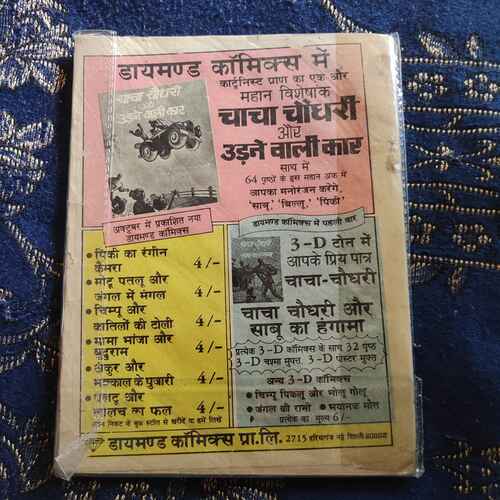 डायमण्ड कॉमिक्स में
कार्टूनिस्ट प्राण का एक और
महान विशेषांक
चाचा चौधरी
और
उड़ने वाली कार
साथ में
64 पृष्ठों के इस महान अंक में
आपका मनोरंजन करेंगे,
'साबू', 'बिल्लू', 'पिंकी'
चाचा चौधरी
और
उड़ने वाली कार
अक्टूबर में प्रकाशित नया
डायमण्ड कॉमिक्स
• पिंकी का रंगीन
कैमरा 4/-
• मोटू पतलू और
जंगल में मंगल 4/-
• चिम्पू और
कातिलों की टोली 4/-
• मामा भांजा और
4/-
• अंकुर और
मक्काल के पुजारी 4/-
• पलटू और
लालच का फल 4/-
अपने निकट के बुक स्टाल से खरीदें या हमें लिखें
डायमण्ड कॉमिक्स में पहली बार
3-D टोन में
आपके प्रिय पात्र
चाचा-चौधरी
चाचा चौधरी और
साबू का हंगामा
प्रत्येक 3-D कॉमिक्स के साथ 32 पृष्ठ
3-D चश्मा मुफ्त, 3-D पोस्टर मुफ्त
अन्य 3-D कॉमिक्स
• चिम्पू पिकलू और भोलू गोलू
• जंगल की रानी • भयानक मौत
प्रत्येक का मूल्य 6/-
डायमण्ड कॉमिक्स प्रा.लि. 2715 दरियागंज नई दिल्ली-110002